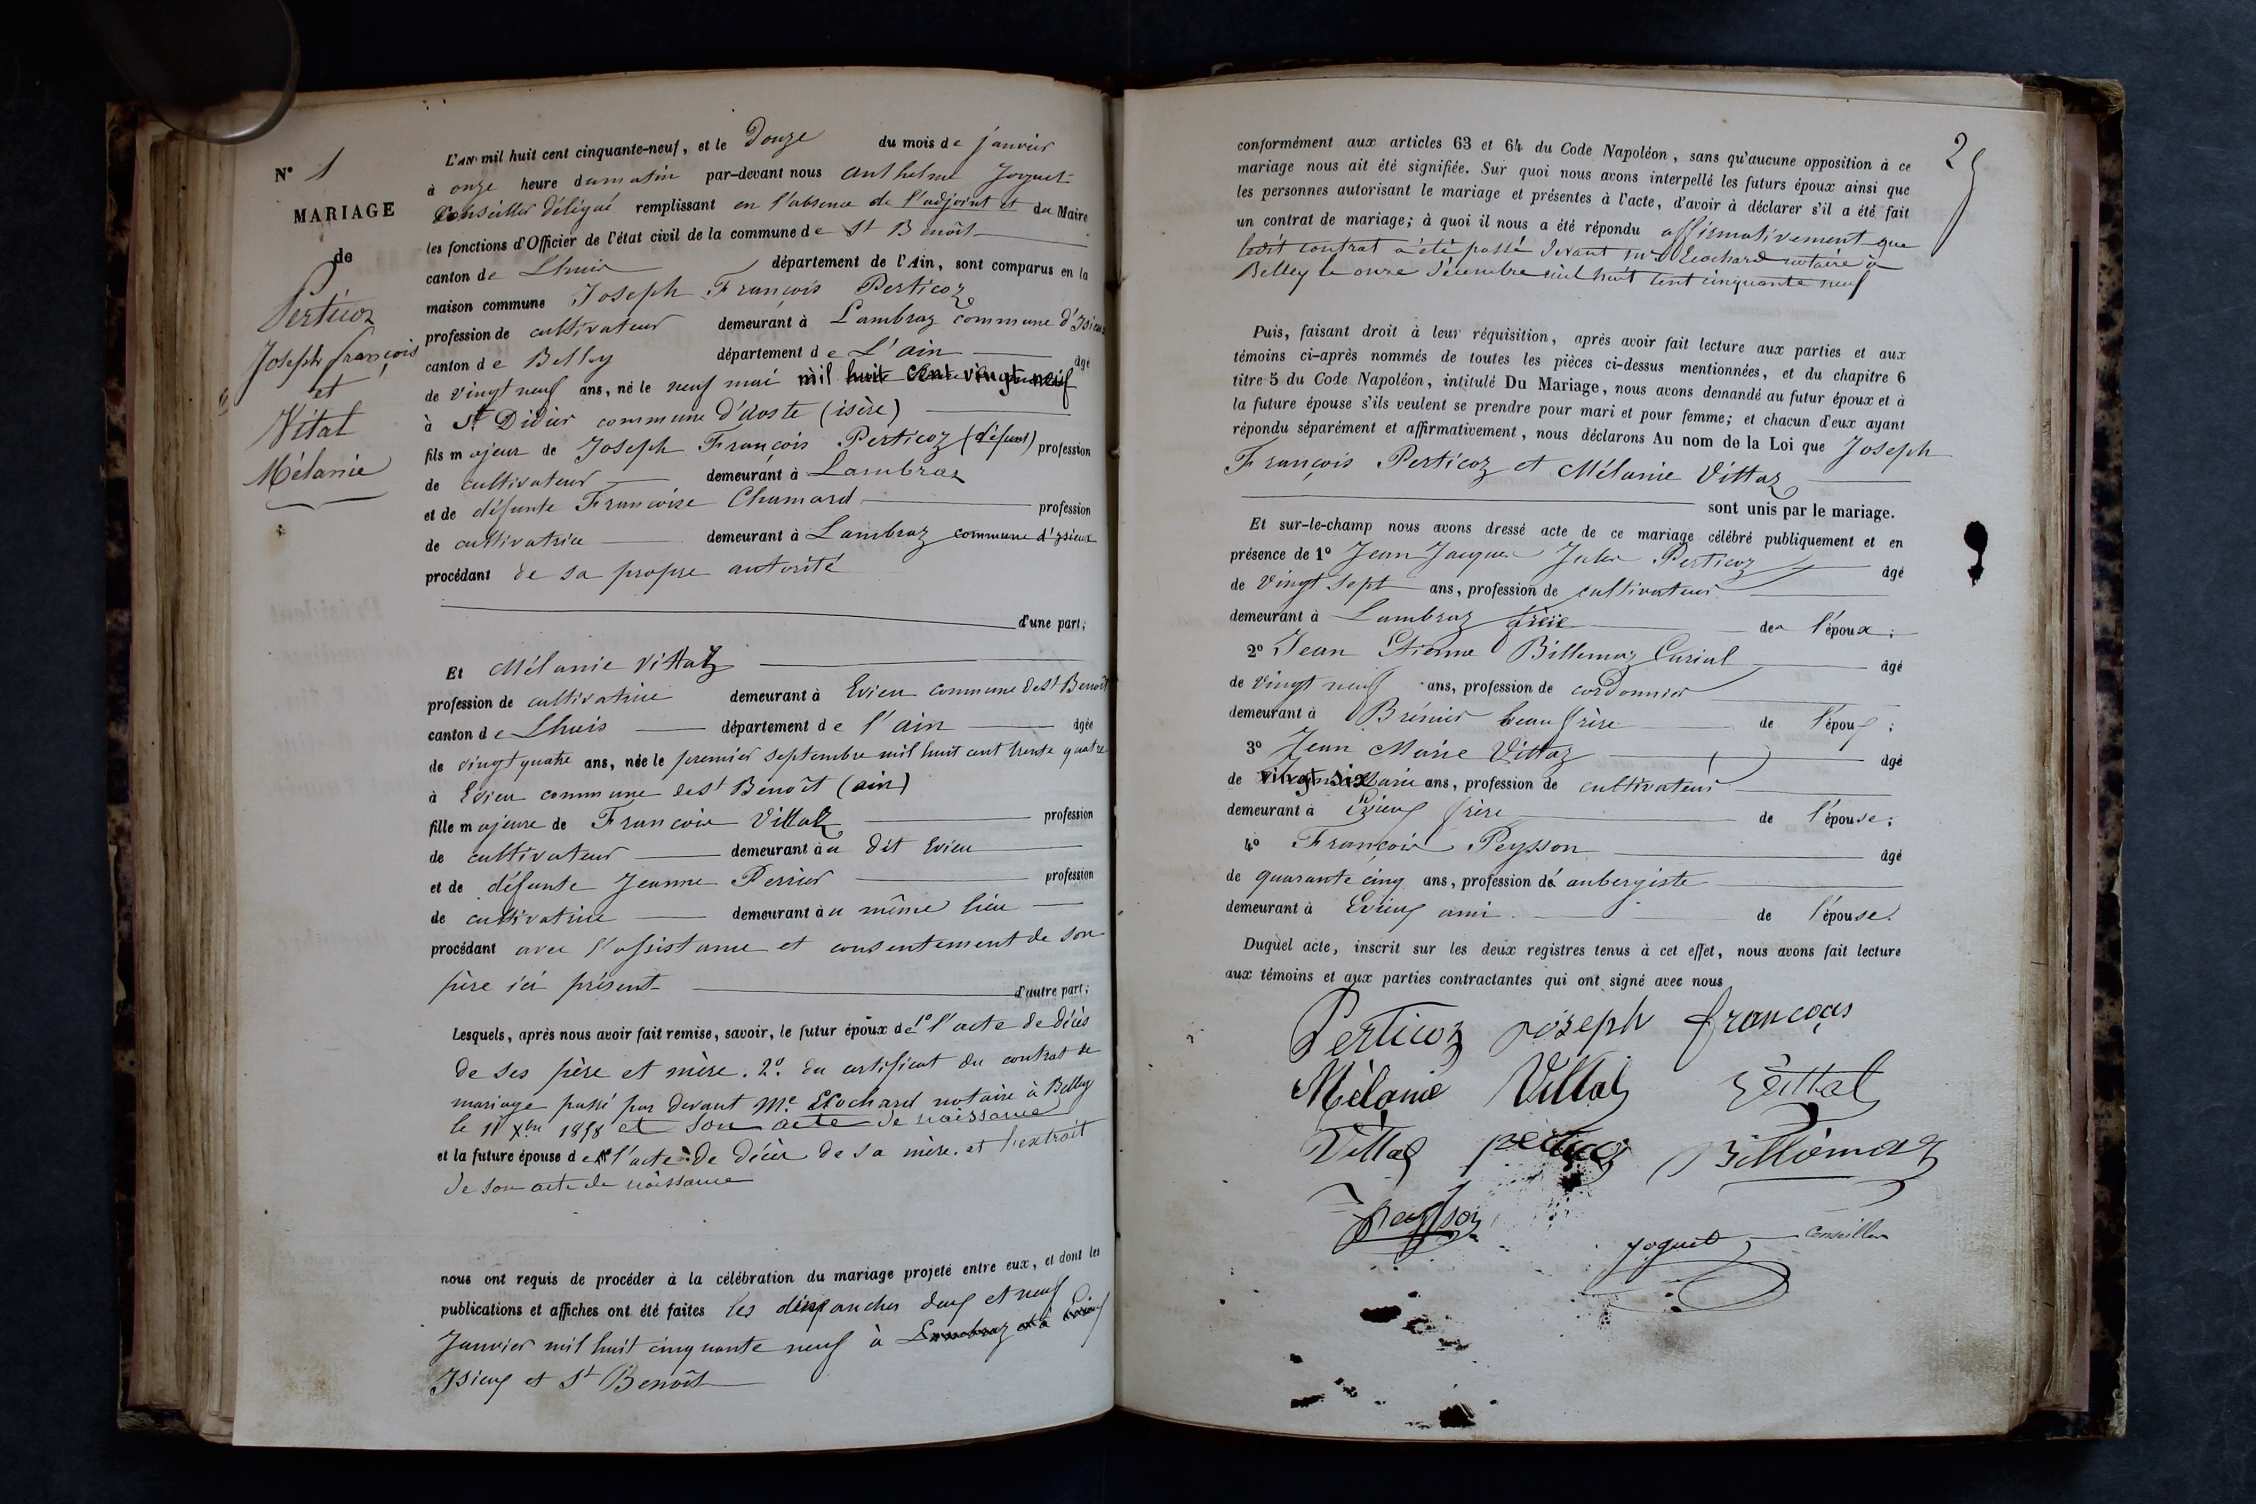 N° 1
MARIAGE
de
Perticoz
Joseph françois
et
Vital
Mélanie
L'AN mil huit cent cinquante-neuf, et le Douze du mois de janvier
à onze heure dumatin par-devant nous anthelme Joguet
Conseiller délégué remplissant en l'absence de l'adjoint et du Maire
les fonctions d'Officier de l'état civil de la commune de St Benoît
canton de Lhuis département de l'Ain, sont comparus en la
maison commune Joseph François Perticoz
profession de cultivateur demeurant à Lambraz commune d'Isieux
canton de Belley département de L'ain âgé
de vingt neuf ans, né le neuf mai mil huit cent vingt neuf
à St Didier commune d'Aoste (isère)
fils majeur de Joseph François Perticoz (défunt) profession
de cultivateur demeurant à Lambraz
et de défunte Francoise Chumard profession
de cultivatrice demeurant à Lambraz commune d'ysieux
procédant de sa propre autorité
d'une part;
Et Mélanie Vittaz
profession de cultivatrice demeurant à Evieu commune de St Benoît
canton de Lhuis département de l'ain âgée
de vingt quatre ans, née le premier septembre mil huit cent trente quatre
à Evieu commune de St Benoît (ain)
fille majeure de Francois Vittaz profession
de cultivateur demeurant au dit Evieu
et de défunte Jeanne Perrier profession
de cultivatrice demeurant au même lieu
procédant avec l'assistance et consentement de son
père ici présent d'autre part;
Lesquels, après nous avoir fait remise, savoir, le futur époux de 1° l'acte de décès
de ses père et mère. 2° du certificat du contrat de
mariage passé par devant Me Ecochard notaire à Belley
le 11 Xbre 1858 et son acte de naissance
et la future épouse de l'acte de décès de sa mère. et l'extrait
de son acte de naissance
nous ont requis de procéder à la célébration du mariage projeté entre eux, et dont les
publications et affiches ont été faites les dimanches deux et neuf
Janvier mil huit cinquante neuf à Lambraz et à Evieux
Isieux et St Benoît
29
conformément aux articles 63 et 64 du Code Napoléon, sans qu'aucune opposition à ce
mariage nous ait été signifiée. Sur quoi nous avons interpellé les futurs époux ainsi que
les personnes autorisant le mariage et présentes à l'acte, d'avoir à déclarer s'il a été fait
un contrat de mariage; à quoi il nous a été répondu affirmativement que
ledit contrat a été passé devant me Ecochard notaire à
Belley le onze décembre mil huit cent cinquante neuf
Puis, faisant droit à leur réquisition, après avoir fait lecture aux parties et aux
témoins ci-après nommés de toutes les pièces ci-dessus mentionnées, et du chapitre 6
titre 5 du Code Napoléon, intitulé Du Mariage, nous avons demandé au futur époux et à
la future épouse s'ils veulent se prendre pour mari et pour femme; et chacun d'eux ayant
répondu séparément et affirmativement, nous déclarons Au nom de la Loi que Joseph
François Perticoz et Mélanie Vittaz
sont unis par le mariage.
Et sur-le-champ nous avons dressé acte de ce mariage célébré publiquement et en
présence de 1° Jean Jacques Jules Perticoz âgé
de vingt sept ans, profession de cultivateur
demeurant à Lambraz frère de l'époux;
2° Jean Etienne Billemaz Curial âgé
de vingt neuf ans, profession de cordonnier
demeurant à Brénier beau frère de l'époux;
3° Jean Marie Vittaz âgé
de vingt six ans, profession de cultivateur
demeurant à Evieux frère de l'épouse;
4° François Peysson âgé
de quarante cinq ans, profession de aubergiste
demeurant à Evieux ami de l'épouse.
Duquel acte, inscrit sur les deux registres tenus à cet effet, nous avons fait lecture
aux témoins et aux parties contractantes qui ont signé avec nous
Perticoz joseph francois
Mélanie Vittaz Vittal
Vittaz perticoz Billiemaz
Peysson
Joguet Conseiller